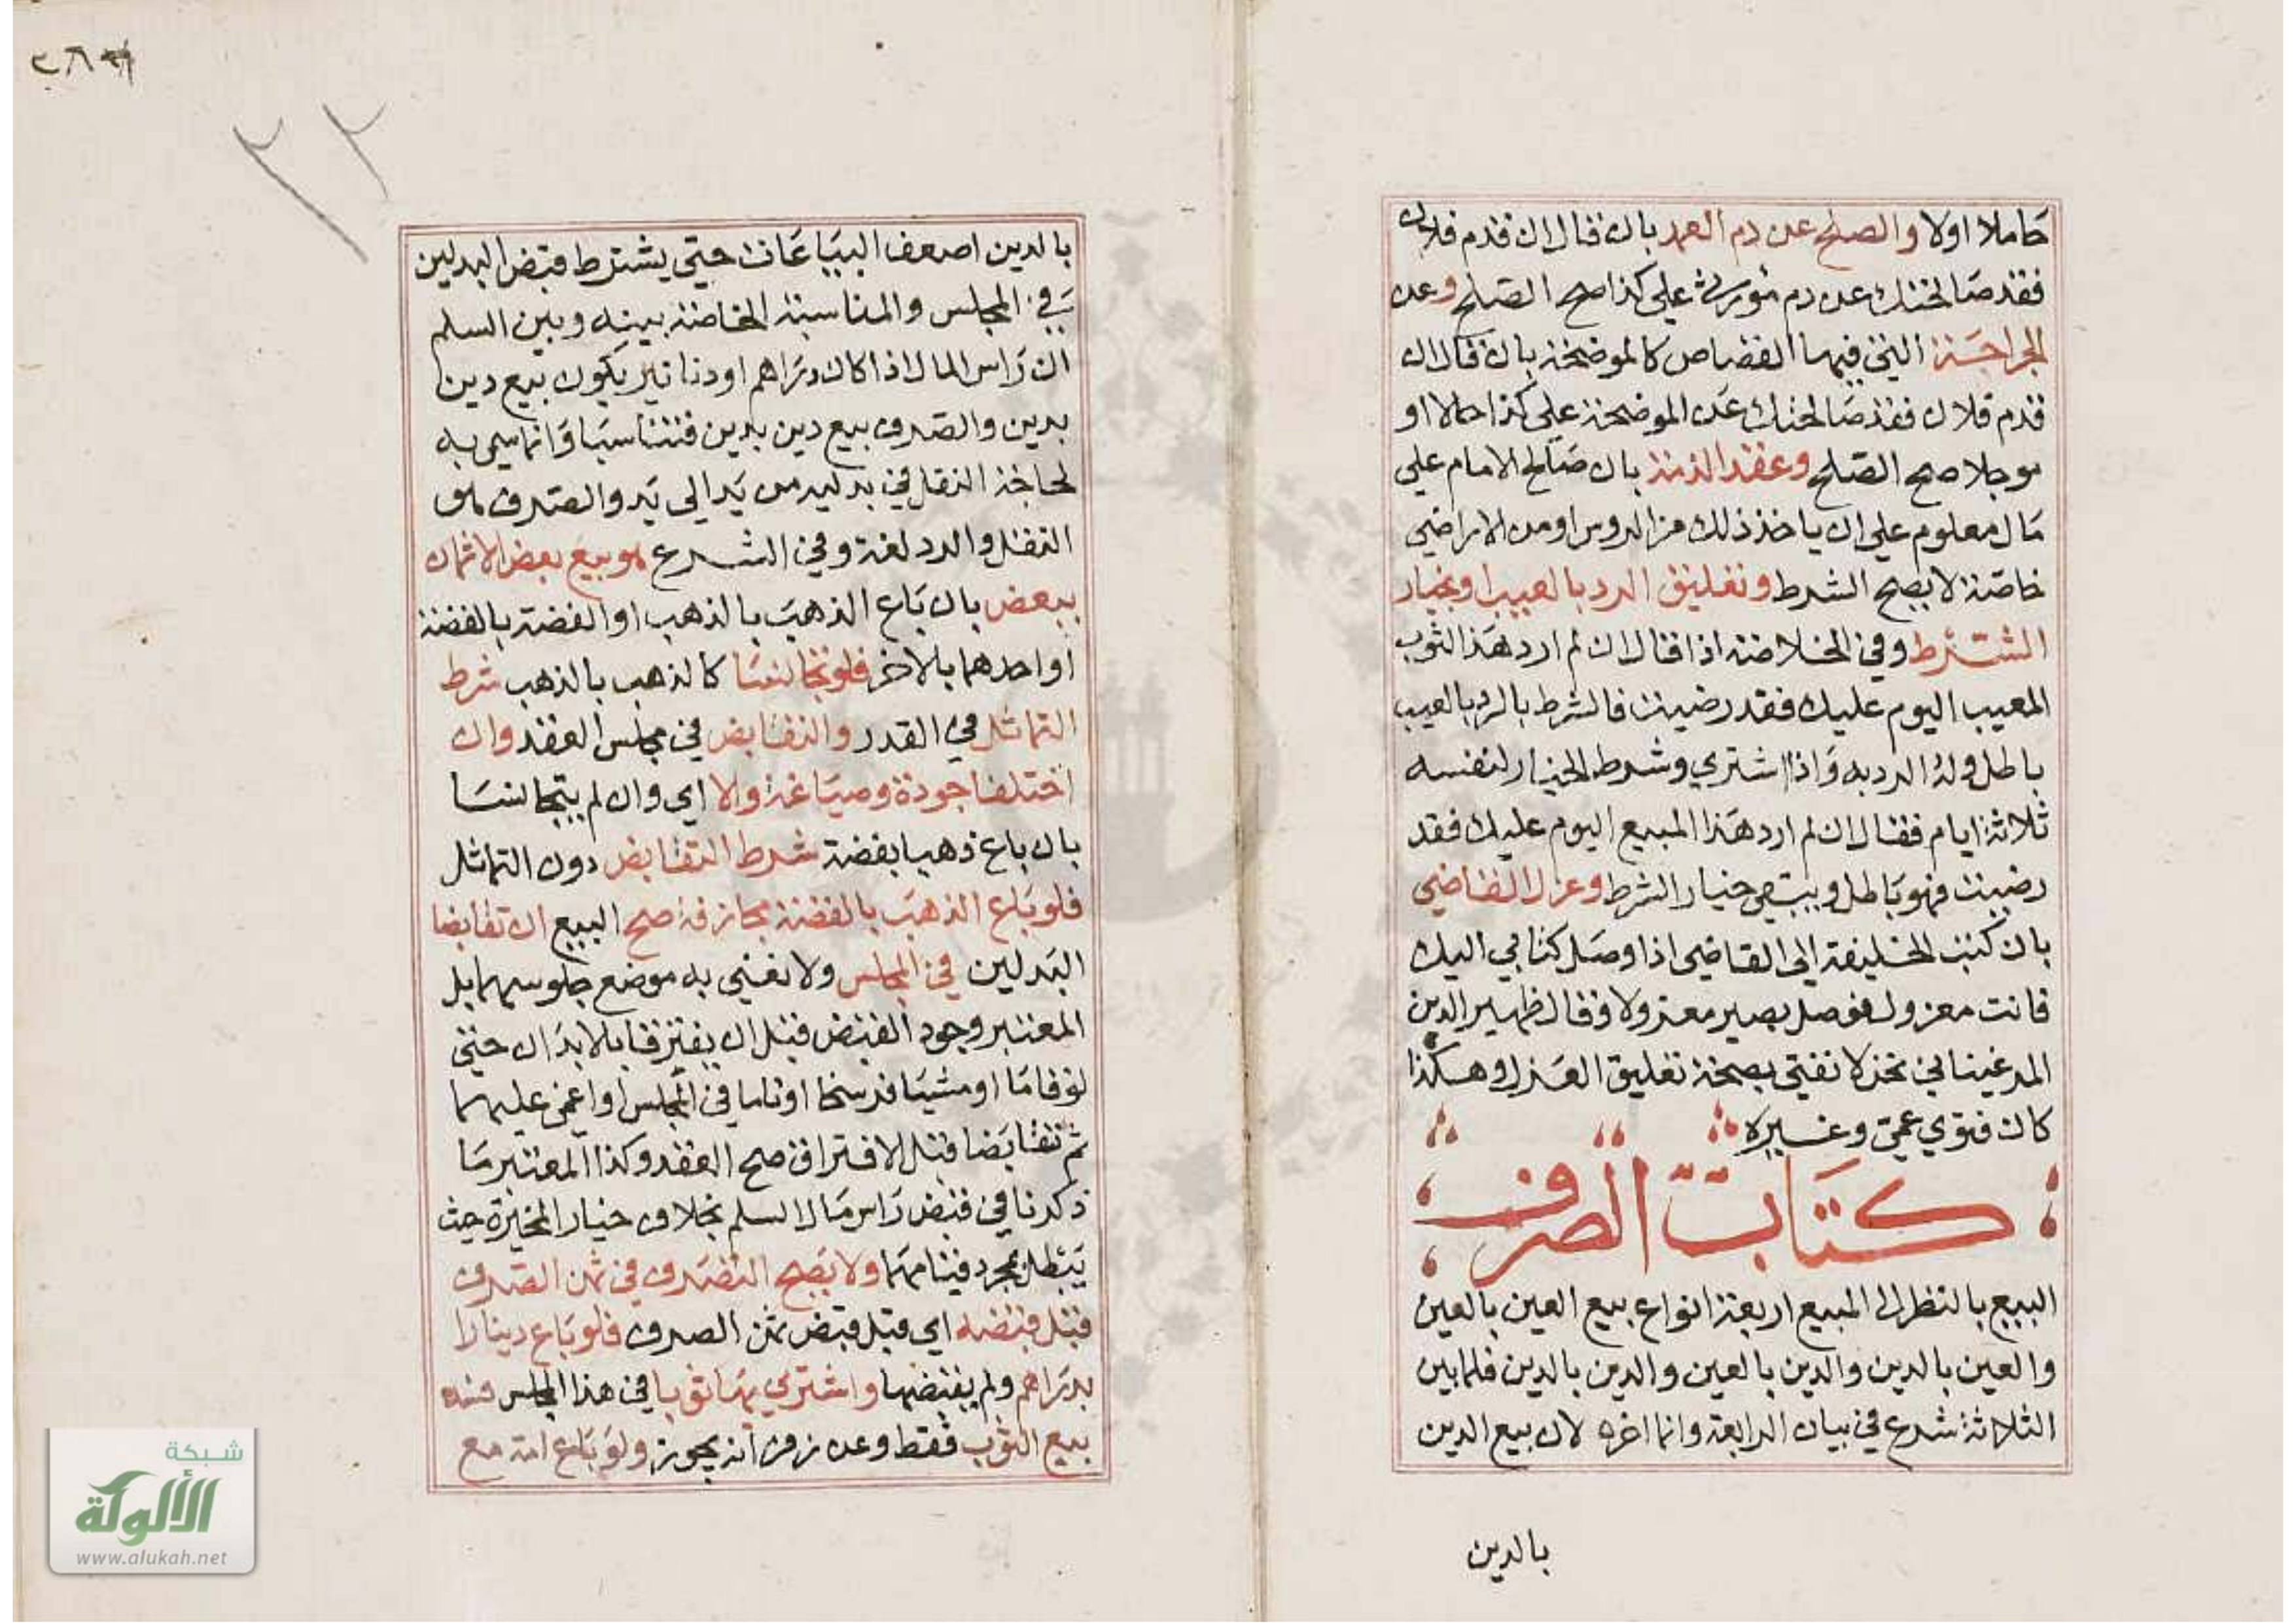 حاملا اولا والصلح عن دم العمد بان قال ان قدم فلان
فقد صالحتك عن دم مورثي على كذا صح الصلح وعن
الجراحة التي فيها القصاص كالموضحة بان قال ان
قدم فلان فقد صالحتك عن الموضحة على كذا حالا او
موجلا صح الصلح وعقد الذمة بان صالح الامام على
مال معلوم على ان ياخذ ذلك من الروس او من الاراضي
خاصة لا يصح الشرط وتعليق الرد بالعيب او بخيار
الشرط وفي الخلاصة اذا قال ان لم ارد هذا الثوب
المعيب اليوم عليك فقد رضيت فالشرط بالرد بالعيب
باطل وله الرد به واذا اشتري وشرط الخيار لنفسه
ثلاثة ايام فقال ان لم ارد هذا المبيع اليوم عليك فقد
رضيت فهو باطل ويبقى خيار الشرط وعزل القاضي
بان كتب الخليفة الى القاضي اذا وصل كتابي اليك
فانت معزول فوصل يصير معزولا وقال ظهير الدين
المرغيناني نحن لا نفتي بصحة تعليق العزل وهكذا
كان فتوي عمي وغيره
كتاب الصرف
البيع بالنظر الى المبيع اربعة انواع بيع العين بالعين
والعين بالدين والدين بالعين والدين بالدين فلما بين
الثلاثة شرع في بيان الرابعة وانما اخره لان بيع الدين
بالدين
٢٢
بالدين اضعف البياعات حتي يشترط قبض البدلين
في المجلس والمناسبة الخاصة بينه وبين السلم
ان راس المال اذا كان دراهم او دنانير يكون بيع دين
بدين والصرف بيع دين بدين فتناسبا وانما سمي به
لحاجة النقل في بدليه من يد الى يد والصرف هو
النقل والرد لغة وفي الشرع هو بيع بعض الاثمان
ببعض بان باع الذهب بالذهب او الفضة بالفضة
او احدهما بالاخر فلو تجانسا كالذهب بالذهب شرط
التماثل في القدر والتقابض في مجلس العقد وان
اختلفا جودة وصياغة والا اي وان لم يتجانسا
بان باع ذهبا بفضة شرط التقابض دون التماثل
فلو باع الذهب بالفضة مجازفة صح البيع ان تقابضا
البدلين في المجلس ولا نعني به موضع جلوسهما بل
المعتبر وجود القبض قبل ان يفترقا بالابدان حتي
لو قاما او مشيا فرسخا او ناما في المجلس او اغمي عليهما
ثم تقابضا قبل الافتراق صح العقد وكذا المعتبر ما
ذكرنا في قبض راس مال السلم بخلاف خيار المخيرة حيث
يبطل بمجرد قيامها ولا يصح التصرف في ثمن الصرف
قبل قبضه اي قبل قبض ثمن الصرف فلو باع دينارا
بدراهم ولم يقبضها واشتري بها ثوبا في هذا المجلس فسد
بيع الثوب فقط وعن زفر انه يجوز ولو باع امة مع
شبكة
الألوكة
www.alukah.net